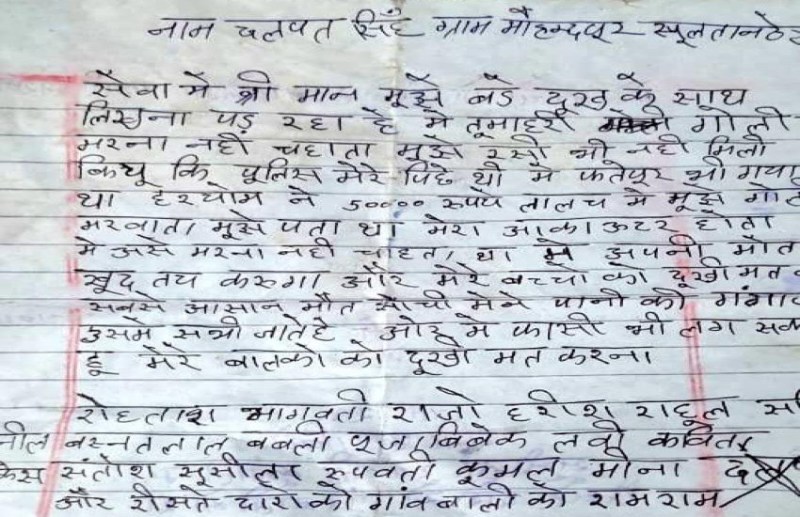 नाम दलपत सिंह ग्राम मौहमदपूर सूलतानठेर
सेवा मे श्री मान मूझे बडे दूख के साथ
लिखना पड़ रहा है मे तूमाहरी गोली
मरना नही चहाता मूझे रसी भी नही मिली
कियू कि पूलिस मेरे पिछे थी मे फतेपूर भी गया
था हरयोम ने 500000 रूपये लालच मे मूझे गोली
मरवाता मूझे पता था मेरा
मे असे मरना नही चाहता था मे अपनी मौत
खूद तय करूगा और मेरे बच्चो को दूखी मत
सबसे आसान मौत सोची मेने पानी की गंगा
उसमे सभी जाते है ओर मे फासी भी लगा सक
हू मेरे बालको को दूखी मत करना
रोहताश भागवती राजो हरीश राहूल
बसनतलाल बबली पूजा बिबेक लवी कविता
संतोश सूसीला रूपवती कूमल मोना
और रीसते दारो को गांव वालो को राम राम